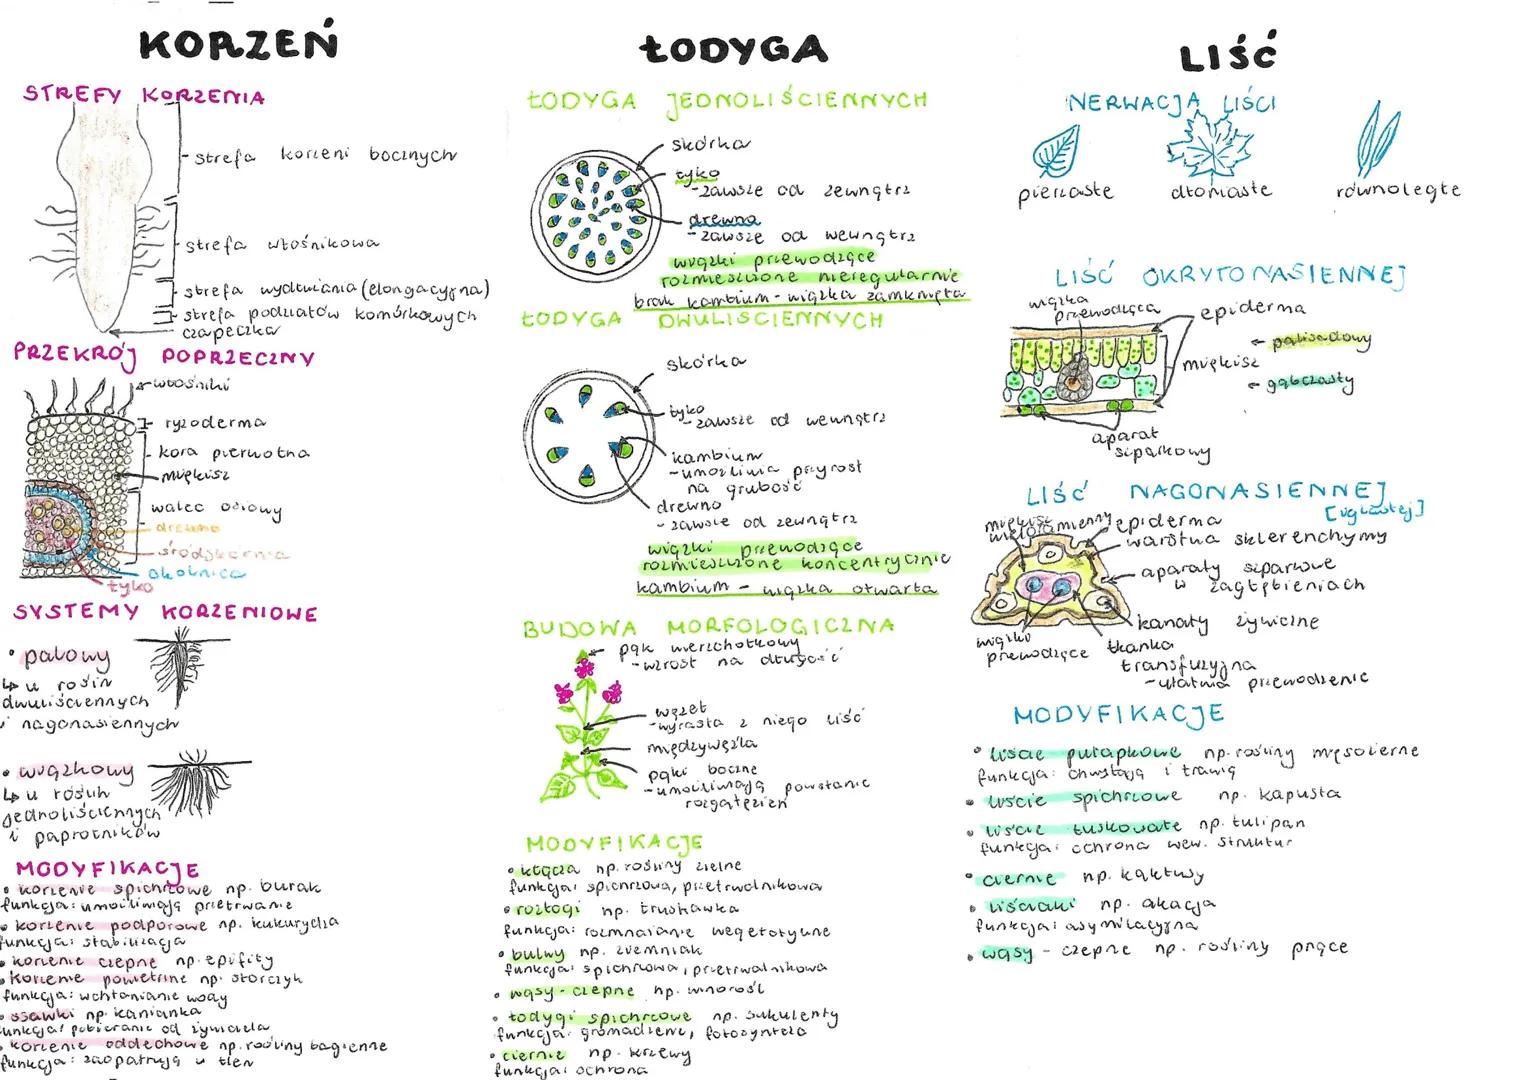 KORZEŃ
STREFY KORZENIA
strefa korzeni bocznych
strefa włośnikowa
strefa wydłużania (elongacyjna)
strefa podziałów komórkowych
czapeczka
PRZEKRÓJ POPRZECZNY
włośniki
ryzoderma
kora pierwotna
miękisz
walec osiowy
drewno
śródskórnia
okolnica
łyko
SYSTEMY KORZENIOWE
• palowy
↳ u roślin
dwuliściennych
i nagonasiennych
• wiązkowy
↳ u roślin
jednoliściennych
i paprotników
MODYFIKACJE
• korzenie spichrzowe np. burak
funkcja: umożliwiają przetrwanie
• korzenie podporowe np. kukurydza
funkcja: stabilizacja
• korzenie czepne np. epifity
• korzenie powietrzne np. storczyk
funkcja: wchłanianie wody
• ssawki np. kanianka
funkcja: pobieranie od żywiciela
• korzenie oddechowe np. rośliny bagienne
funkcja: zaopatrują w tlen
ŁODYGA
ŁODYGA JEDNOLIŚCIENNYCH
skórka
łyko
- zawsze od zewnątrz
drewno
- zawsze od wewnątrz
wiązki przewodzące
rozmieszczone nieregularnie
brak kambium - wiązka zamknięta
ŁODYGA DWULIŚCIENNYCH
skórka
łyko
- zawsze od wewnątrz
kambium
- umożliwia przyrost
na grubość
drewno
- zawsze od zewnątrz
wiązki przewodzące
rozmieszczone koncentrycznie
kambium - wiązka otwarta
BUDOWA MORFOLOGICZNA
pąk wierzchołkowy
- wzrost na długość
węzeł
- wyrasta z niego liść
międzywęźla
pąki boczne
- umożliwiają powstanie
rozgałęzień
MODYFIKACJE
• kłącza np. rośliny zielne
funkcja: spichrzowa, przetrwalnikowa
• rozłogi np. truskawka
funkcja: rozmnażanie wegetatywne
• bulwy np. ziemniak
funkcja: spichrzowa, przetrwalnikowa
• wąsy - czepne np. winorośl
• łodygi spichrzowe np. sukulenty
funkcja: gromadzenie, fotosynteza
• ciernie np. krzewy
funkcja: ochrona
LIŚĆ
NERWACJA LIŚCI
pierzaste dłoniaste równoległe
LIŚĆ OKRYTONASIENNEJ
wiązka
przewodząca
epiderma
← palisadowy
miękisz
← gąbczasty
aparat
szparkowy
LIŚĆ NAGONASIENNEJ
[iglastej]
miękisz
wieloramienny
epiderma
warstwa sklerenchymy
aparaty szparkowe
w zagłębieniach
kanały żywiczne
wiązki
przewodzące
tkanka
transfuzyjna
- ułatwia przewodzenie
MODYFIKACJE
• liście pułapkowe np. rośliny mięsożerne
funkcja: chwytają i trawią
• liście spichrzowe np. kapusta
• liście łuskowate np. tulipan
funkcja: ochrona wew. struktur
• ciernie np. kaktusy
• liściaki np. akacja
funkcja: asymilacyjna
• wąsy - czepne np. rośliny pnące